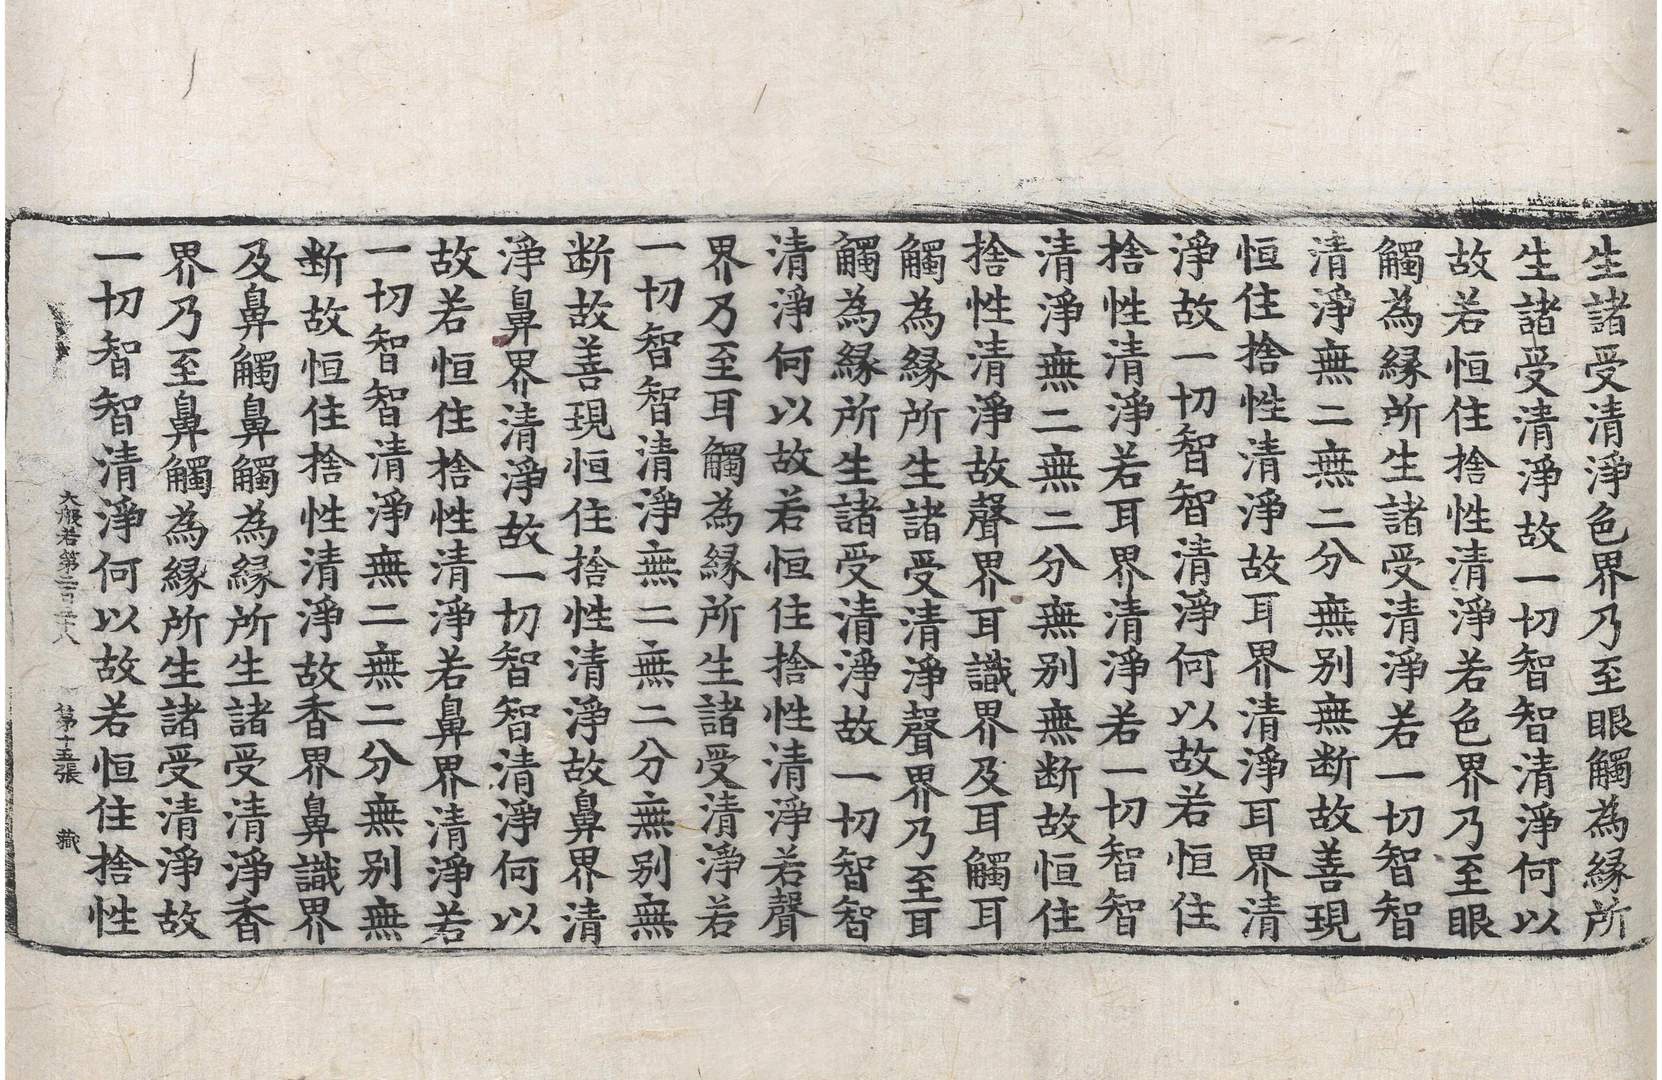 生諸受清淨色界乃至眼觸為緣所
生諸受清淨故一切智智清淨何以
故若恒住捨性清淨若色界乃至眼
觸為緣所生諸受清淨若一切智智
清淨無二無二分無別無斷故善現
恒住捨性清淨故耳界清淨耳界清
淨故一切智智清淨何以故若恒住
捨性清淨若耳界清淨若一切智智
清淨無二無二分無別無斷故恒住
捨性清淨故聲界耳識界及耳觸耳
觸為緣所生諸受清淨聲界乃至耳
觸為緣所生諸受清淨故一切智智
清淨何以故若恒住捨性清淨若聲
界乃至耳觸為緣所生諸受清淨若
一切智智清淨無二無二分無別無
斷故善現恒住捨性清淨故鼻界清
淨鼻界清淨故一切智智清淨何以
故若恒住捨性清淨若鼻界清淨若
一切智智清淨無二無二分無別無
斷故恒住捨性清淨故香界鼻識界
及鼻觸鼻觸為緣所生諸受清淨香
界乃至鼻觸為緣所生諸受清淨故
一切智智清淨何以故若恒住捨性
大般若第二百三十八 第十五張 藏